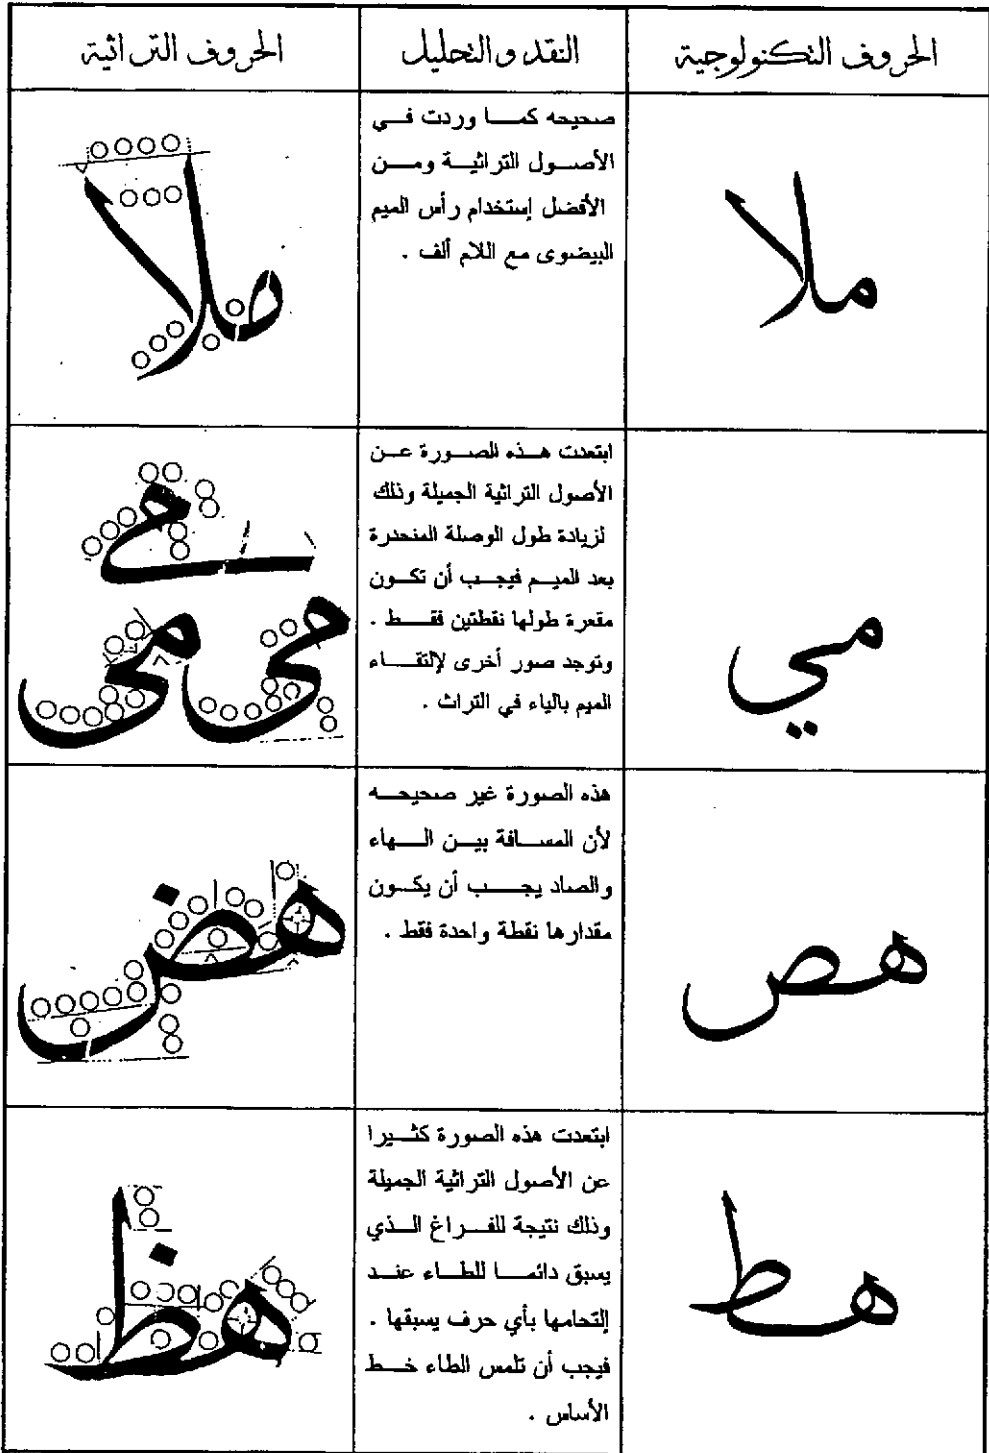 الحروف التكنولوجية
النقد والتحليل
الحروف التراثية
ملا
صحيحه كمـــا وردت فـــي
الأصـــول التراثيـــة ومـــن
الأفضل إستخدام رأس الميم
البيضوى مع اللام ألف .
ملا
مي
ابتعدت هـــذه الصـــورة عـــن
الأصول التراثية الجميلة وذلك
لزيادة طول الوصلة المنحدرة
بعد الميـــم فيجـــب أن تكـــون
مقعرة طولها نقطتين فقـــط .
وتوجد صور أخرى لإلتقـــاء
الميم بالياء في التراث .
مے
مى مى
هص
هذه الصورة غير صحيحـــه
لأن المســـافة بيـــن الـــهاء
والصاد يجـــب أن يكـــون
مقدارها نقطة واحدة فقط .
هض
هط
ابتعدت هذه الصورة كثـــيرا
عن الأصول التراثية الجميلة
وذلك نتيجة للفـــراغ الـــذي
يسبق دائمـــا للطـــاء عنـــد
إلتحامها بأي حرف يسبقها .
فيجب أن تلمس الطاء خـــط
الأساس .
هظ